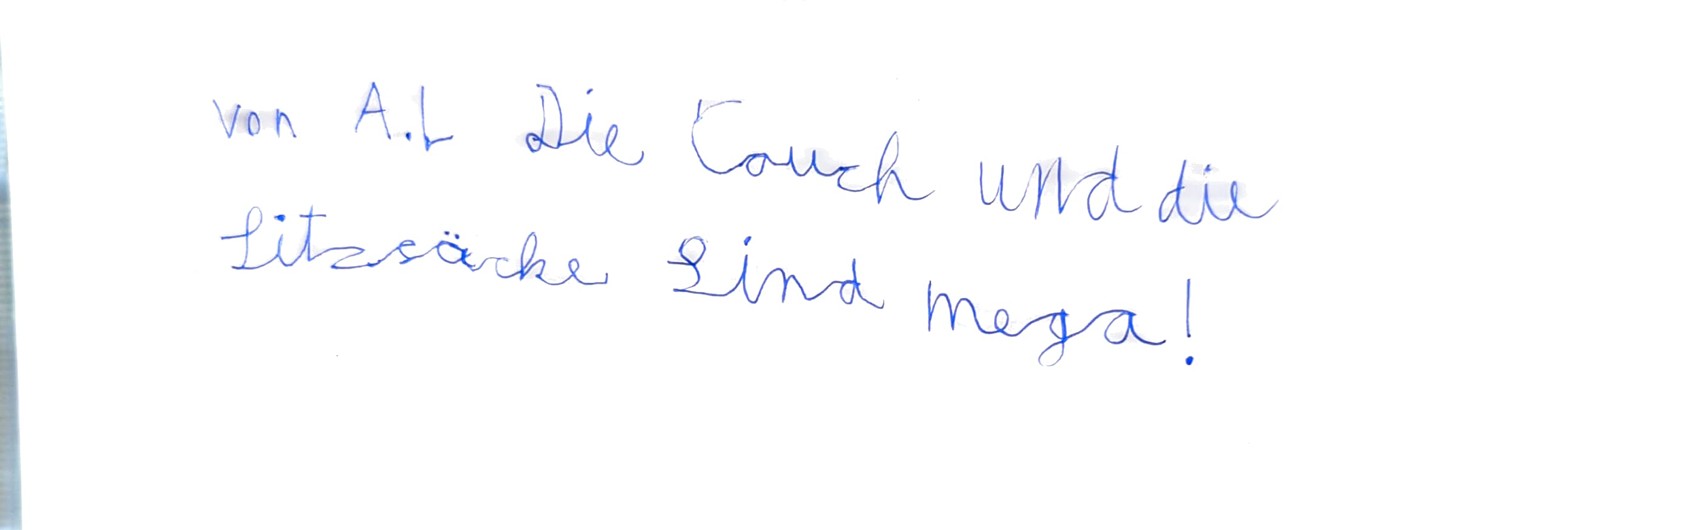 von A.L Die Couch und die
Sitzsäcke Sind mega!